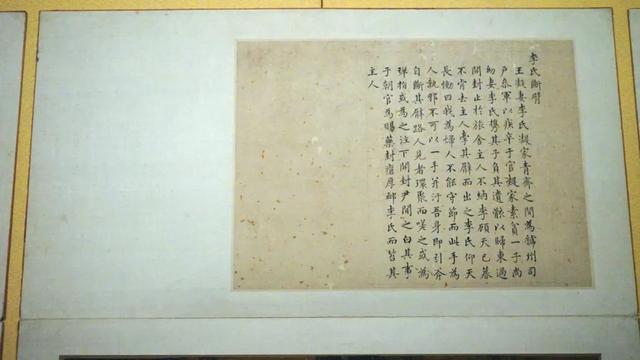 李氏斷臂
王凝妻李氏凝家青齊之間為虢州司
戶參軍以疾卒于官凝家素貧一子尚
幼妻李氏携其子負其遺骸以歸東過
開封止於旅舍主人不納李顧天已暮
不肯去主人牽其臂而出之李氏仰天
長慟曰我為婦人不能守節而此手為
人執邪不可以一手并汙吾身即引斧
自斷其臂路人見者環聚而嗟之或為
彈指或為之泣下開封尹聞之白其事
于朝官為賜藥封瘡厚卹李氏而笞其
主人